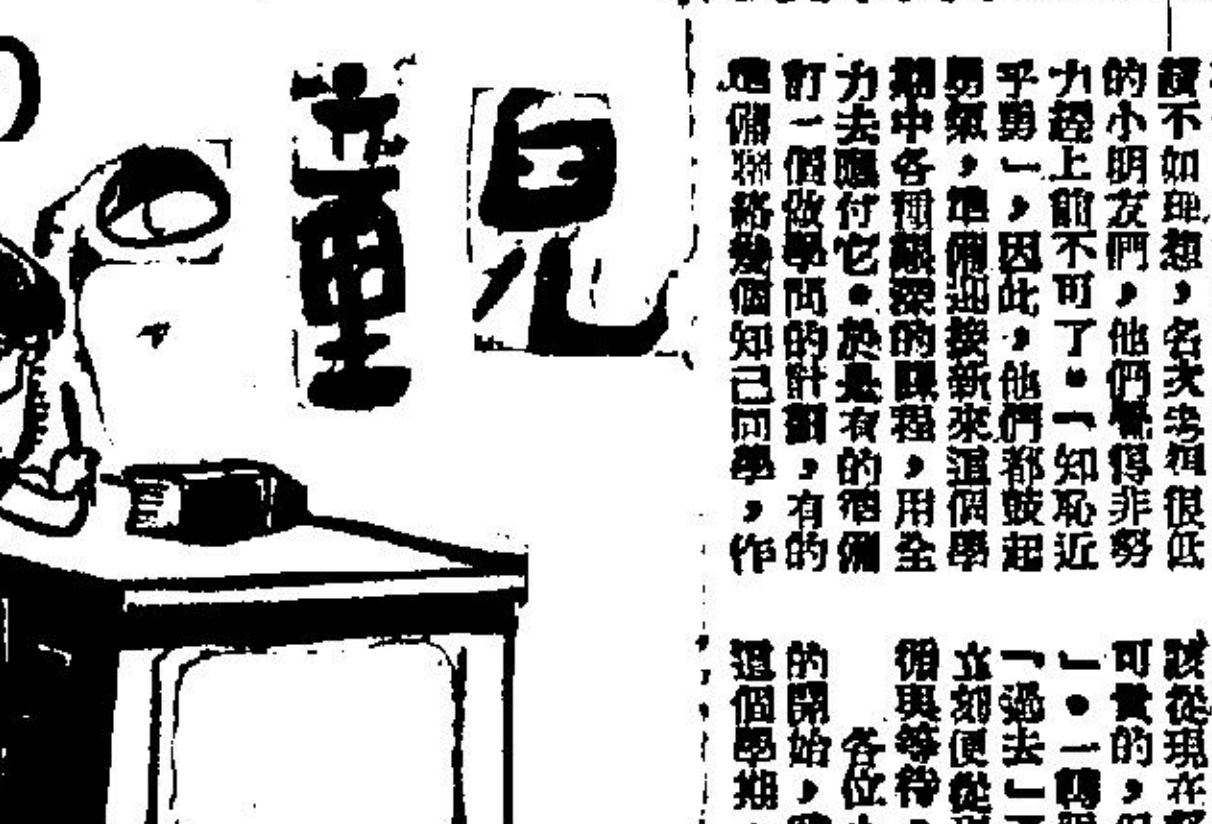 兒童
績不如理想，名次考得很低
的小朋友們，他們覺得非努
力趕上前不可了。「知恥近
乎勇」，因此，他們都鼓起
勇氣，準備迎接新來這個學
期中各種艱深的課程，用全
力去應付它。於是有的準備
訂一個做學問的計劃，有的
準備聯絡幾個知己同學，作
該從現在
可貴的，但
」。一轉眼
「過去」
立刻便從
徊與等待
各位小
的開始，
這個學期